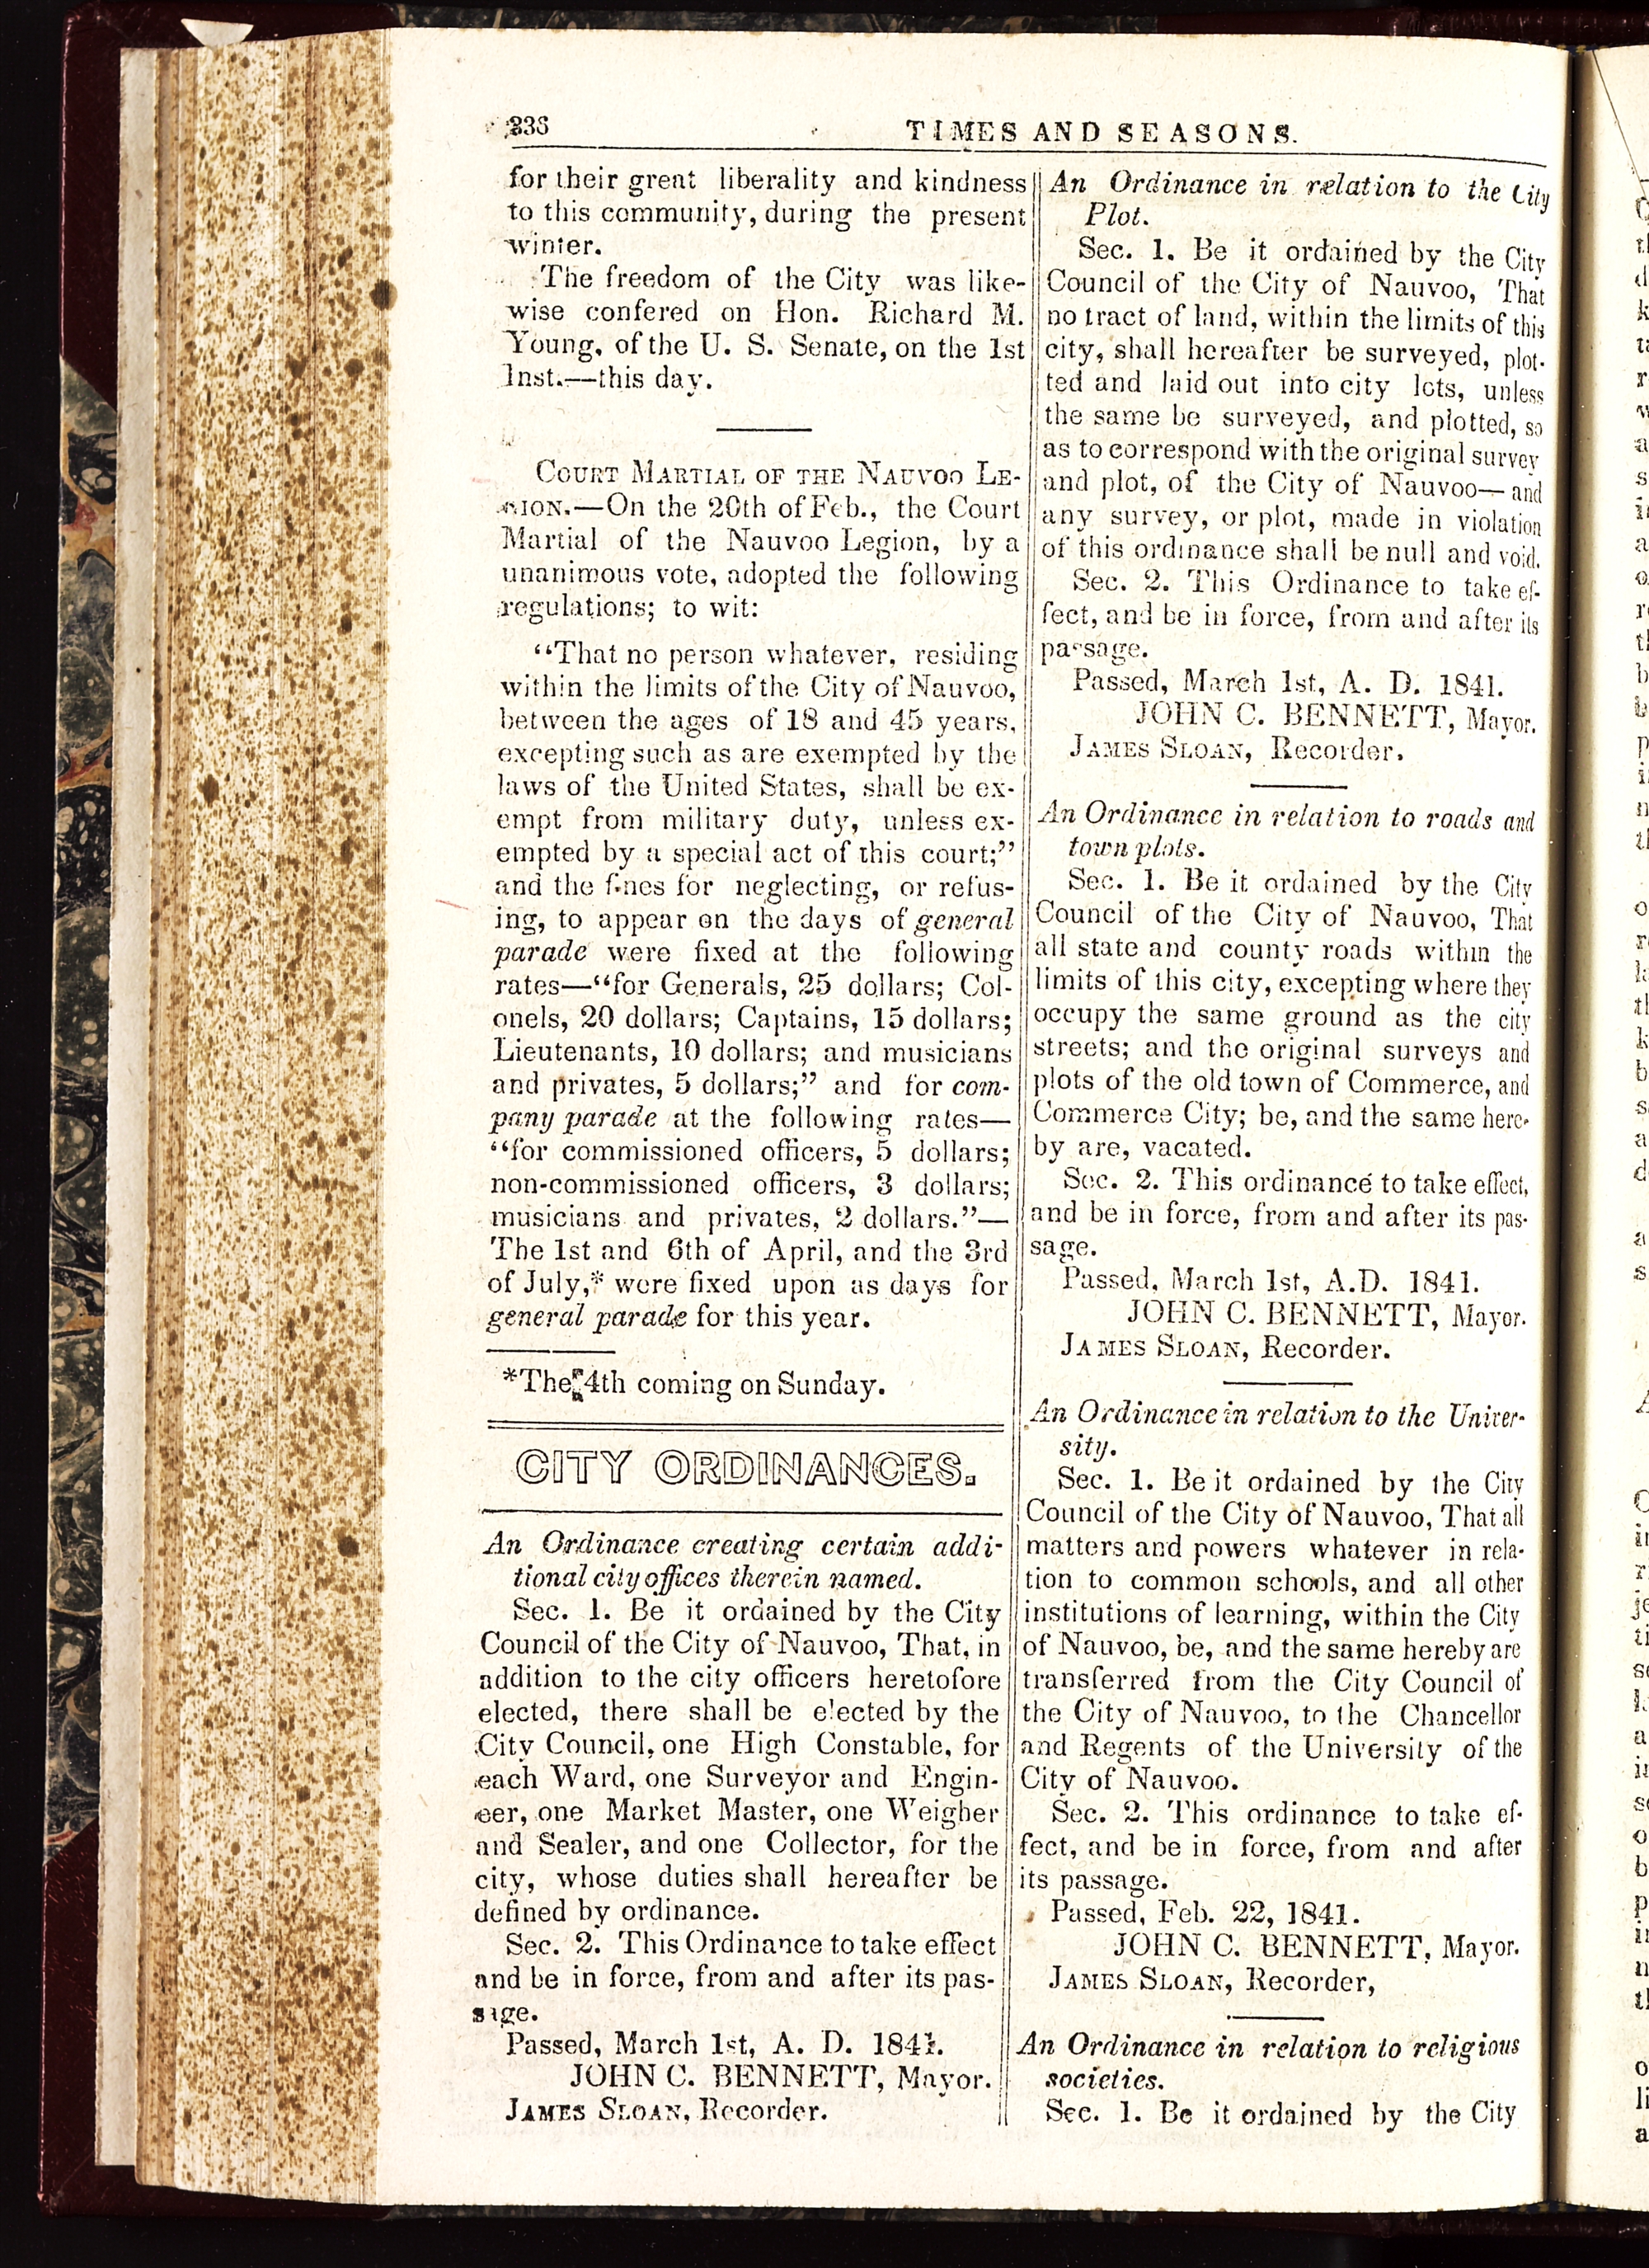 336
TIMES AND SEASONS.
for their great liberality and kindness
to this community, during the present
winter.
The freedom of the City was like-
wise confered on Hon. Richard M.
Young, of the U. S. Senate, on the 1st
Inst.—this day.
COURT MARTIAL OF THE NAUVOO LE-
GION.—On the 20th of Feb., the Court
Martial of the Nauvoo Legion, by a
unanimous vote, adopted the following
regulations; to wit:
“That no person whatever, residing
within the limits of the City of Nauvoo,
between the ages of 18 and 45 years,
excepting such as are exempted by the
laws of the United States, shall be ex-
empt from military duty, unless ex-
empted by a special act of this court;”
and the fines for neglecting, or refus-
ing, to appear on the days of general
parade were fixed at the following
rates—“for Generals, 25 dollars; Col-
onels, 20 dollars; Captains, 15 dollars;
Lieutenants, 10 dollars; and musicians
and privates, 5 dollars;” and for com-
pany parade at the following rates—
“for commissioned officers, 5 dollars;
non-commissioned officers, 3 dollars;
musicians and privates, 2 dollars.”—
The 1st and 6th of April, and the 3rd
of July,* were fixed upon as days for
general parade for this year.
*The 4th coming on Sunday.
CITY ORDINANCES.
An Ordinance creating certain addi-
tional city offices therein named.
Sec. 1. Be it ordained by the City
Council of the City of Nauvoo, That, in
addition to the city officers heretofore
elected, there shall be elected by the
City Council, one High Constable, for
each Ward, one Surveyor and Engin-
eer, one Market Master, one Weigher
and Sealer, and one Collector, for the
city, whose duties shall hereafter be
defined by ordinance.
Sec. 2. This Ordinance to take effect
and be in force, from and after its pas-
sage.
Passed, March 1st, A. D. 1841.
JOHN C. BENNETT, Mayor.
JAMES SLOAN, Recorder.
An Ordinance in relation to the City
Plot.
Sec. 1. Be it ordained by the City
Council of the City of Nauvoo, That
no tract of land, within the limits of this
city, shall hereafter be surveyed, plot-
ted and laid out into city lots, unless
the same be surveyed, and plotted, so
as to correspond with the original survey
and plot, of the City of Nauvoo—and
any survey, or plot, made in violation
of this ordinance shall be null and void.
Sec. 2. This Ordinance to take ef-
fect, and be in force, from and after its
passage.
Passed, March 1st, A. D. 1841.
JOHN C. BENNETT, Mayor.
JAMES SLOAN, Recorder.
An Ordinance in relation to roads and
town plots.
Sec. 1. Be it ordained by the City
Council of the City of Nauvoo, That
all state and county roads within the
limits of this city, excepting where they
occupy the same ground as the city
streets; and the original surveys and
plots of the old town of Commerce, and
Commerce City; be, and the same here-
by are, vacated.
Sec. 2. This ordinance to take effect,
and be in force, from and after its pas-
sage.
Passed, March 1st, A.D. 1841.
JOHN C. BENNETT, Mayor.
JAMES SLOAN, Recorder.
An Ordinance in relation to the Univer-
sity.
Sec. 1. Be it ordained by the City
Council of the City of Nauvoo, That all
matters and powers whatever in rela-
tion to common schools, and all other
institutions of learning, within the City
of Nauvoo, be, and the same hereby are
transferred from the City Council of
the City of Nauvoo, to the Chancellor
and Regents of the University of the
City of Nauvoo.
Sec. 2. This ordinance to take ef-
fect, and be in force, from and after
its passage.
Passed, Feb. 22, 1841.
JOHN C. BENNETT, Mayor.
JAMES SLOAN, Recorder,
An Ordinance in relation to religious
societies.
Sec. 1. Be it ordained by the City